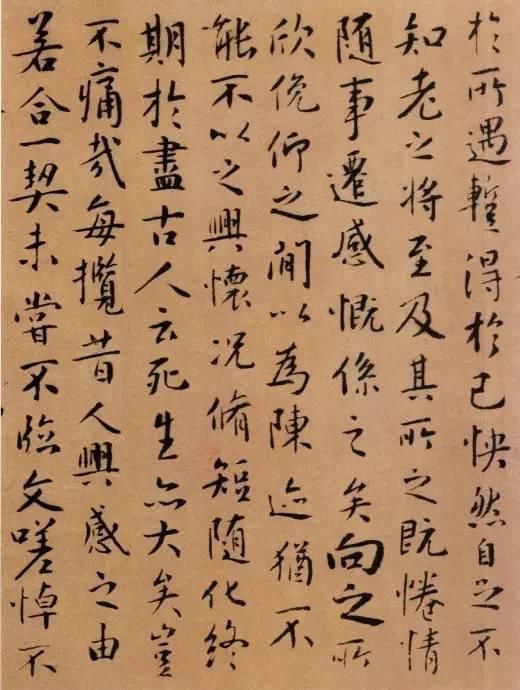 於所遇暫得於己怏然自足不
知老之將至及其所之既惓情
随事遷感慨係之矣向之所
欣俛仰之閒以為陳迹猶不
能不以之興懷况脩短随化終
期於盡古人云死生亦大矣豈
不痛哉每攬昔人興感之由
若合一契未嘗不臨文嗟悼不